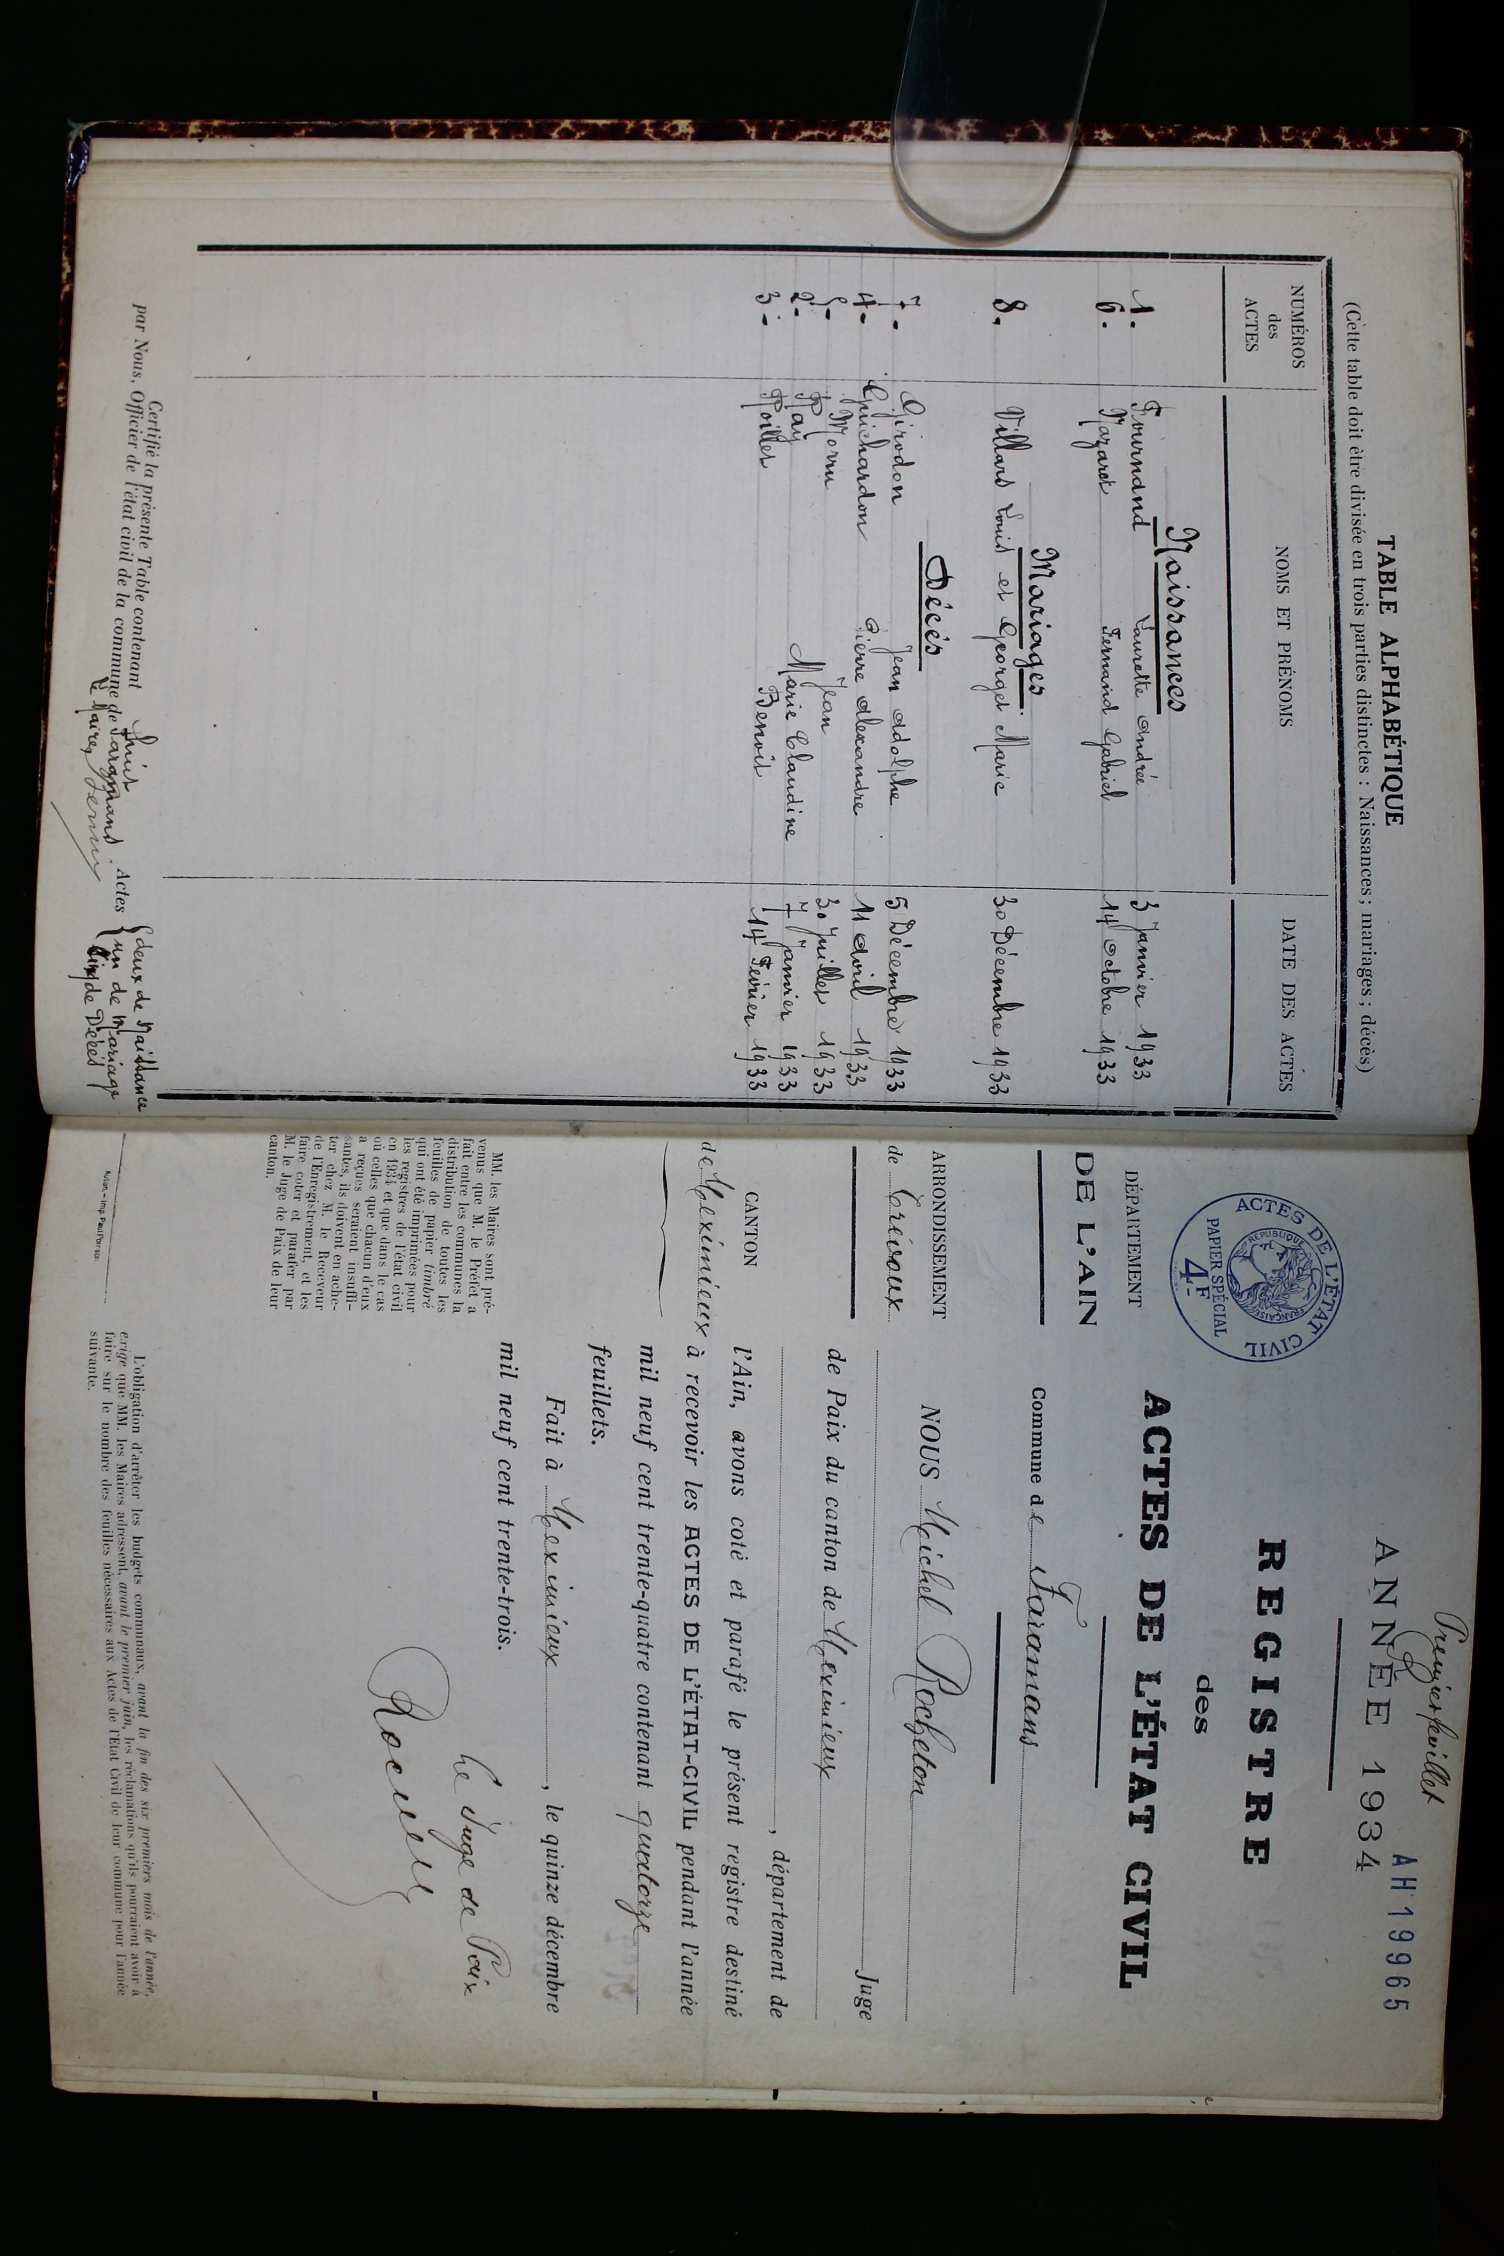 TABLE ALPHABÉTIQUE
(Cette table doit être divisée en trois parties distinctes : Naissances ; mariages ; décès)
NUMÉROS des ACTES NOMS ET PRÉNOMS DATE DES ACTES
Naissances
1. Fournand Laurette Andrée 3 Janvier 1933
6. Nazaret Fernand Gabriel 14 Octobre 1933
Mariages
8. Villard Louis et Georget Marie 30 Décembre 1933
Décès
7. Girodon Jean Adolphe 5 Décembre 1933
4. Guichardon Pierre Alexandre 11 Avril 1933
5. Jean 30 Juillet 1933
2. Ray Marie Claudine 7 Janvier 1933
3. Benoit 14 Février 1933
Certifié la présente Table contenant huit Actes { deux de Naissance
par Nous, Officier de l'état civil de la commune de Faramans. un de Mariage
Le Maire, Cinq de Décès
Premier feuillet
AH 19965
ANNÉE 1934
REGISTRE
des
ACTES DE L'ÉTAT CIVIL
ACTES DE L'ÉTAT CIVIL
RÉPUBLIQUE FRANÇAISE
PAPIER SPÉCIAL
4F
DÉPARTEMENT
DE L'AIN
Commune de Faramans
ARRONDISSEMENT
de Trévoux
NOUS Michel Rocheton
Juge
de Paix du canton de Meximieux
, département de
CANTON
de Meximieux
l'Ain, avons coté et parafé le présent registre destiné
à recevoir les ACTES DE L'ÉTAT-CIVIL pendant l'année
mil neuf cent trente-quatre contenant quatorze
feuillets.
Fait à Meximieux, le quinze décembre
mil neuf cent trente-trois.
Le Juge de Paix
MM. les Maires sont pré-
venus que M. le Préfet a
fait entre les communes la
distribution de toutes les
feuilles de papier timbré
qui ont été imprimées pour
les registres de l'état civil
en 1934 et que dans le cas
où celles que chacun d'eux
a reçues seraient insuffi-
santes, ils doivent en ache-
ter chez M. le Receveur
de l'Enregistrement, et les
faire coter et parafer par
M. le Juge de Paix de leur
canton.
L'obligation d'arrêter les budgets communaux, avant la fin des six premiers mois de l'année,
exige que MM. les Maires adressent, avant le premier juin, les réclamations qu'ils pourraient avoir à
faire sur le nombre des feuilles nécessaires aux Actes de l'Etat Civil de leur commune pour l'année
suivante.